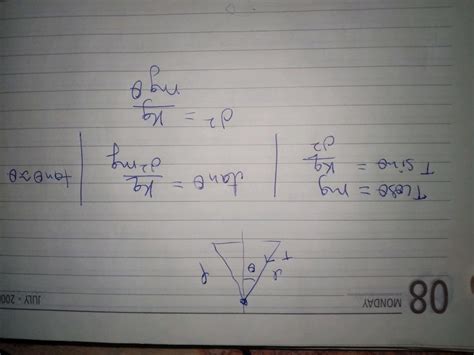 08 MONDAY JULY - 200
l θ l
T
Tcosθ = mg
T sinθ = Kq/d²
tanθ = Kq/d²mg
tanθ≈θ
d² = Kq/mgθ